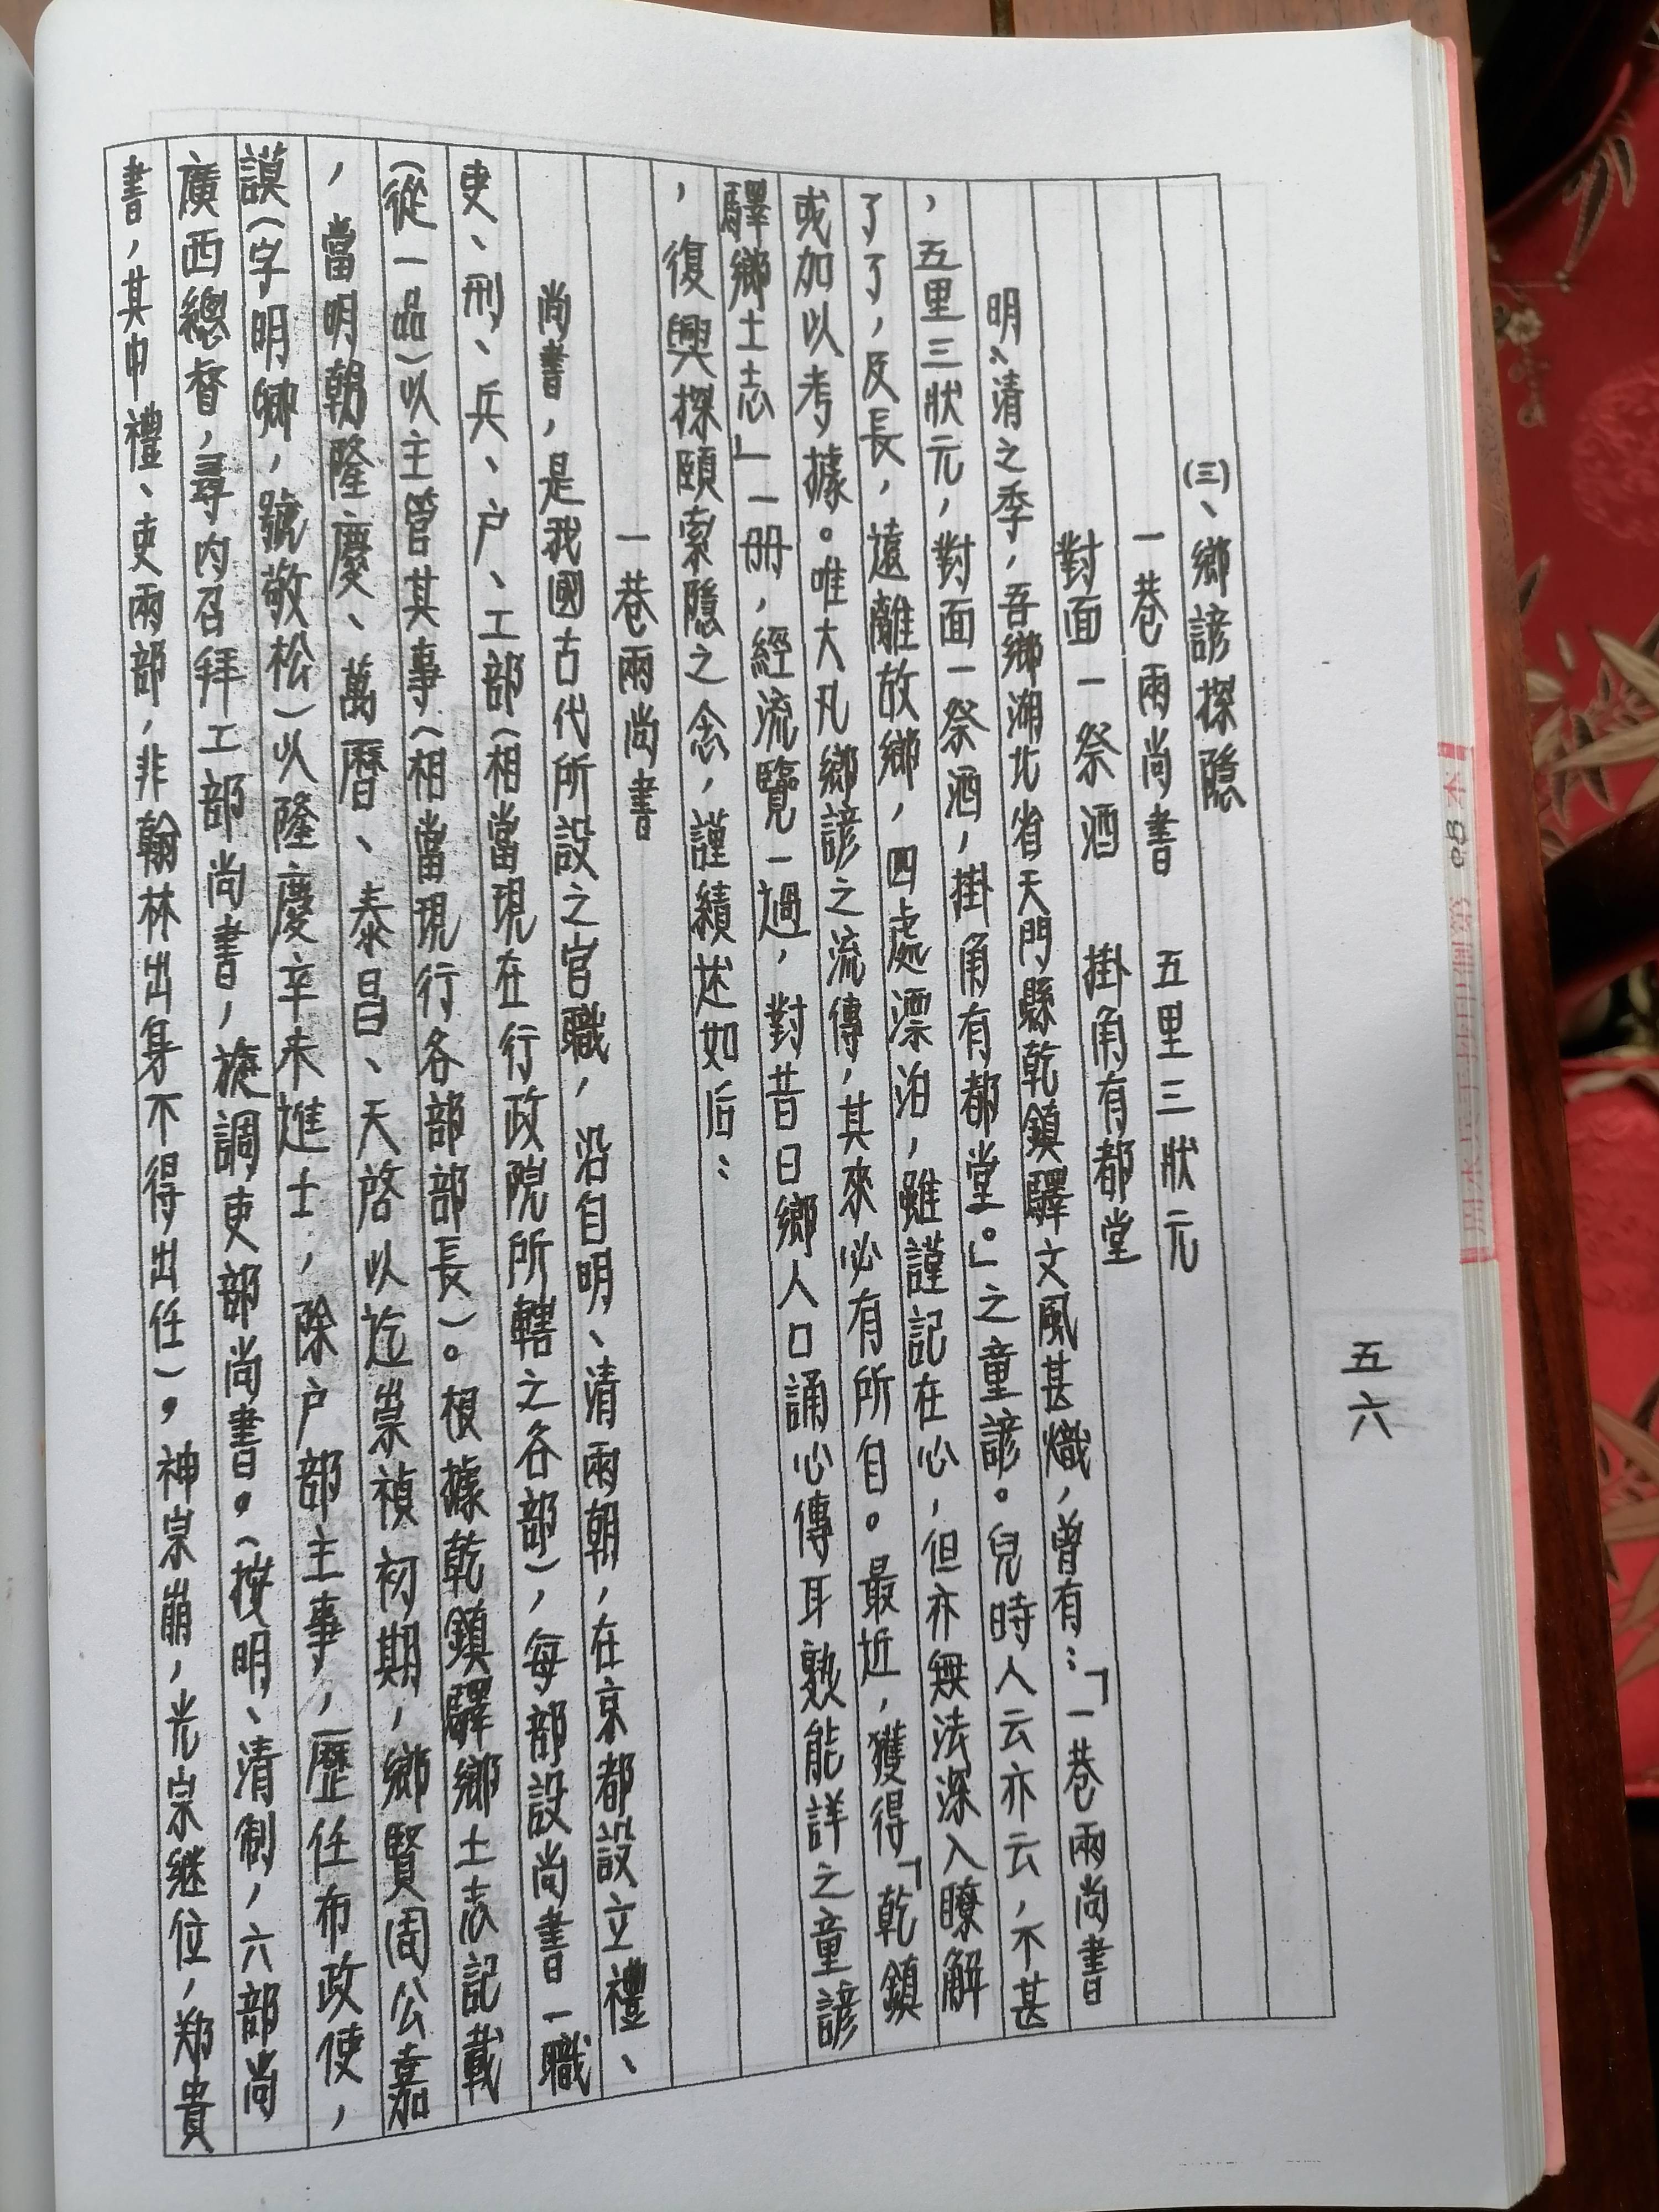 五六
(三)、鄉諺探隱
一巷兩尚書　五里三狀元
對面一祭酒　掛角有都堂
明、清之季，吾鄉湖北省天門縣乾鎮驛文風甚熾，曾有：「一巷兩尚書
，五里三狀元，對面一祭酒，掛角有都堂。」之童諺。兒時人云亦云，不甚
了了，及長，遠離故鄉，四處漂泊，雖謹記在心，但亦無法深入瞭解
或加以考據。唯大凡鄉諺之流傳，其來必有所自。最近，獲得「乾鎮
驛鄉土志」一冊，經流覽一過，對昔日鄉人口誦心傳耳熟能詳之童諺
，復興探頤索隱之念，謹績述如后：
一巷兩尚書
尚書，是我國古代所設之官職，沿自明、清兩朝，在京都設立禮、
吏、刑、兵、户、工部（相當現在行政院所轄之各部），每部設尚書一職
（從一品）以主管其事（相當現行各部部長）。根據乾鎮驛鄉土志記載
，當明朝隆慶、萬曆、泰昌、天啓以迄崇禎初期，鄉賢周公嘉
謨（字明卿，號敬松）以隆慶辛未進士，除户部主事，歷任布政使，
廣西總督，尋內召拜工部尚書，旋調吏部尚書。（按明、清制，六部尚
書，其中禮、吏兩部，非翰林出身不得出任），神宗崩，光宗继位，郑貴